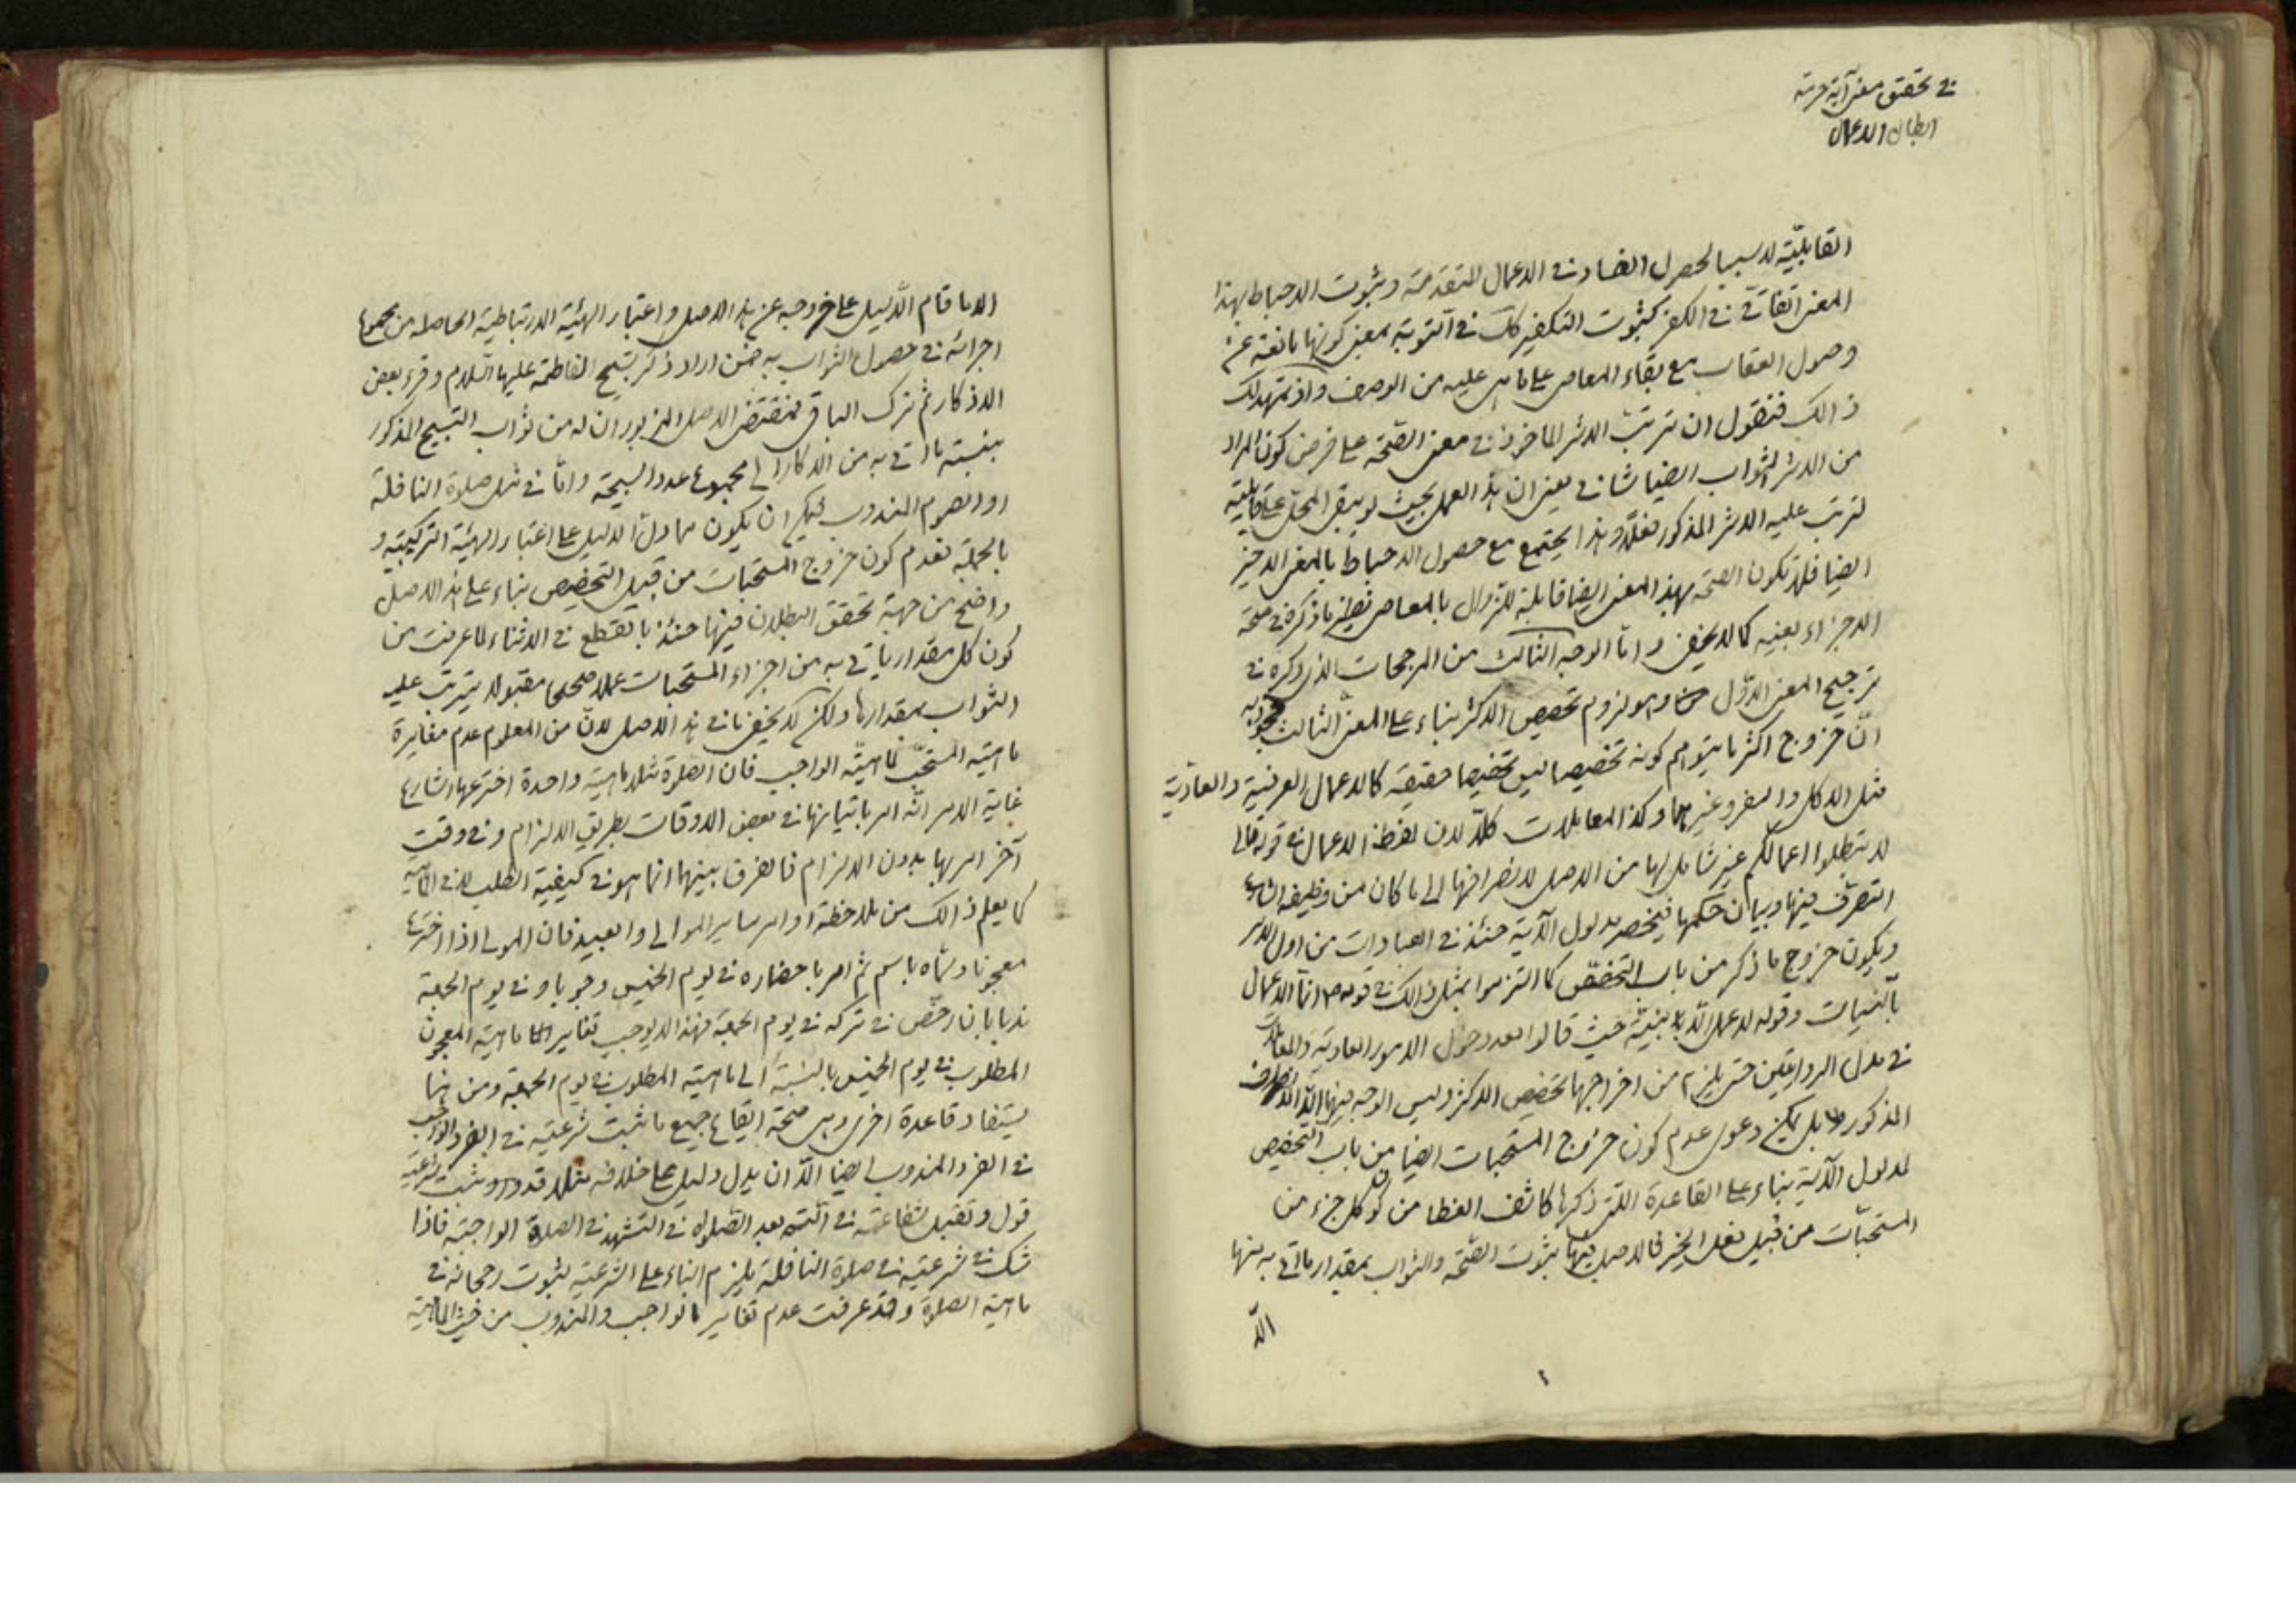 في تحقيق معنى آية حرمة
ابطال الاعمال
القابليّة لا سببا لحصول الفساد في الاعمال المتقدمة وثبوت الاحباط بهذا
المعنى اتفاقى في الكفر كثبوت التكفير كك في التوبة بمعنى كونها مانعة عن
وصول العقاب مع بقاء المعاصى على ما هى عليه من الوصف واذ تمهد لك
ذالك فنقول ان ترتب الاثر الماخوذ في معنى الصّحة على فرض كون المراد
من الاثر الثواب ايضا شانى يعنى ان هذا العمل بحيث لو يبقى المحل على قابليته
لترتب عليه الاثر المذكور فعلا وهذا يجتمع مع حصول الاحباط بالمعنى الاخير
ايضا فلا تكون الصحة بهذا المعنى ايضا قابلة للزوال بالمعاصى نظير ما ذكره في صحة
الاجزاء بعينه كما لا يخفى وامّا الوجه الثالث من المرجحات الذى ذكره في
ترجيح المعنى الاوّل وهو لزوم تخصيص الاكثر بناء على المعنى الثالث فجوابه
انّ خروج اكثر ما يتوهم كونه تخصيصا ليس تخصيصا حقيقة كالاعمال العرفية والعاديّة
مثل الاكل والسفر وغيرهما وكذا المعاملات كلّا لان لفظ الاعمال في قوله تعالى
لا تبطلوا اعمالكم غير شامل لها من الاصل لانصرافها الى ما كان من وظيفة الشارع
التصرّف فيها وبيان حكمها فينحصر مدلول الآية حينئذ في العبادات من اول الامر
ويكون خروج ما ذكر من باب التخصّص كما التزموا بمثل ذالك في قوله ص انّما الاعمال
بالنّيات وقوله لا عمل الّا بنيّة حيث قالوا بعدم دخول الامور العادية والمعاملات
في مدلول الروايتين حتى يلزم من اخراجها تخصيص الاكثر وليس الوجه فيها الّا الانصراف
المذكور بل يمكن دعوى عدم كون خروج المستحبات ايضا من باب التخصيص
لمدلول الآية بناء على القاعدة اللتى ذكرها كاشف الغطا من كون كل جزء من
المستحبّات من قبيل فعل الخير فالاصل فيها ثبوت الصّحة والثواب بمقدار ما اتى به منها
الّا
الّا ما قام الدّليل على خروجه عن هذا الاصل واعتبار الهيئية الارتباطية الحاصلة من مجموع
اجزائه في حصول الثواب به فمن اراد ذكر تسبيح الفاطمة عليها السّلام وقرء بعض
الاذكار ثم ترك الباقى فمقتضى الاصل المزبور ان له من ثواب التسبيح المذكور
بنسبة ما اتى به من الاذكار الى مجموع عدد السبحة وامّا في مثل صلوة النافلة
او الصوم المندوب فيمكن ان يكون مما دلّ الدليل على اعتبار الهيئية التركيبية و
بالجملة فعدم كون خروج المستحبات من قبيل التخصيص بناء على هذا الاصل
واضح من جهة تحقق البطلان فيها حينئذ بالقطع في الاثناء لما عرفت من
كون كل مقدار ياتى به من اجزاء المستحبات عملا صحيحا مقبولا يترتب عليه
الثواب بمقدارها ولكن لا يخفى ما في هذا الاصل لانّ من المعلوم عدم مغايرة
ماهيّة المستحبّ لماهيّة الواجب فان الصّلوة مثلا ماهية واحدة اخترعها الشارع
غاية الامر انّه امر باتيانها في بعض الاوقات بطريق الالزام وفي وقت
آخر امر بها بدون الالزام فالفرق بينهما انما هو في كيفية الطلب لا في الماهية
كما يعلم ذالك من ملاحظة اوامر ساير الموالى والعبيد فان المولى اذا اخترع
معجونا وسمّاه باسم ثم امر باحضاره في يوم الخميس وجوبا وفي يوم الجمعة
ندبا بان رخّص في تركه في يوم الجمعة فهذا لا يوجب تغاير ماهيّة المعجون
المطلوب في يوم الخميس بالنسبة الى ماهيّة المطلوب في يوم الجمعة ومن هنا
يستفاد قاعدة اخرى وهى صحة ايقاع جميع ما ثبت شرعيّته في الفرد الواجب
في الفرد المندوب ايضا الّا ان يدل دليل على خلافه مثلا قد ورد وثبت شرعيّة
قول وتقبل شفاعته في امّته بعد الصّلوة في التشهد في الصلوة الواجبة فاذا
شك في شرعيته في صلوة النافلة يلزم البناء على الشرعية لثبوت رجحانه في
ماهية الصلوة وقد عرفت عدم تغاير الواجب والمندوب من حيث الماهيّة